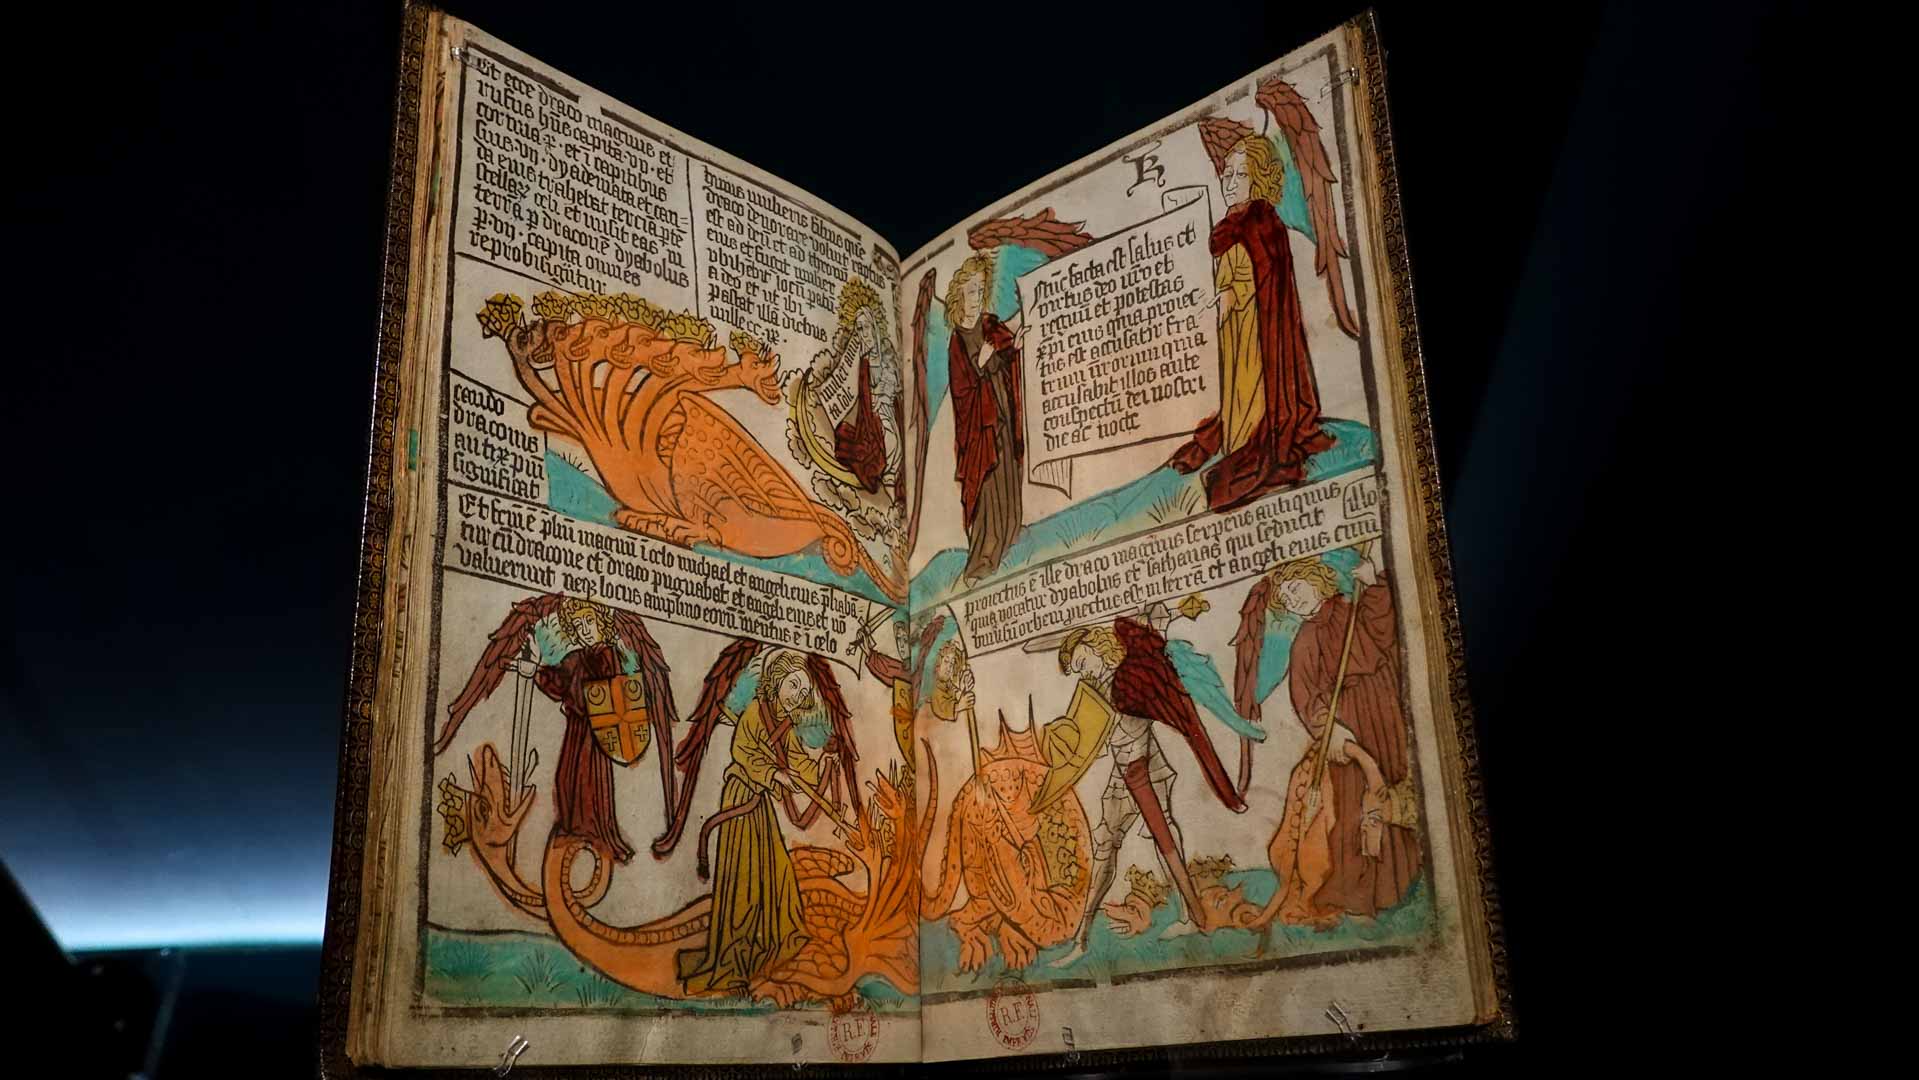 Et ecce draco magnus et
rufus hñs capita · vii · et
cornua · x · et i capitibus
suis · vii · dyademata et cau-
da eius trahebat terciã ptẽ
stellaꝝ celi et misit eas in
terrã p draconẽ dyabolus
p · vii · capita omnes
reprobi sigñtur
huius mulieris filius quẽ
draco devorare voluit raptus
est ad deũ et ad thronũ
eius et fugit mulier
ubi habẽt locũ patũ
a deo et ut ibi
pascat illã diebus
mille cc · lx ·
mulier amic
ta sole
cauda
draconis
antixp̃m
significat
Et fcm̃ ẽ plm̃ magnũ i celo michael et angeli eius p̃liabã-
tur cũ dracone et draco pugnabat et angeli eius et nõ
valuerunt neqꝫ locus amplius eorũ inventus ẽ i celo
k
Nũc facta est salus et
virtus deo nr̃o et
regnũ et potestas
xp̃i eius quia proiec-
tus est accusator fra-
trum nr̃orum qui a
accusabit illos ante
conspectũ dei nostri
die ac nocte
proiectus ẽ ille draco magnus serpens antiquus
qui vocatur dyabolus et sathanas qui seducit
universũ orbem proiectus est in terrã et angeli eius cum
illo
R.F.
R.F.